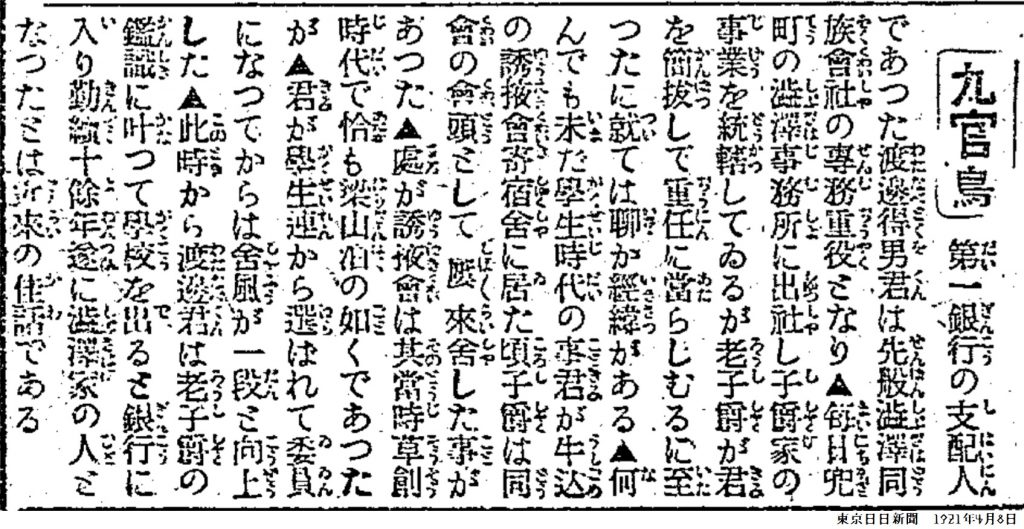 九官鳥 第一銀行の支配人
であつた渡邊得男君は先般澁澤同
族會社の專務重役となり▲每日兜
町の澁澤事務所に出社し子爵家の
事業を統轄してゐるが老子爵が君
を簡拔して重任に當らしむるに至
つたに就ては聊か經緯がある▲何
んでも未だ學生時代の事君が牛込
の誘掖會寄宿舍に居た頃子爵は同
會の會頭として屢來舍した事が
あつた▲處が誘掖會は其當時草創
時代で恰も梁山泊の如くであつた
が▲君が學生連から選ばれて委員
になつてからは舍風が一段と向上
した▲此時から渡邊君は老子爵の
鑑識に叶つて學校を出ると銀行に
入り勤續十餘年遂に澁澤家の人と
なつたとは近來の佳話である
東京日日新聞 1921年4月8日